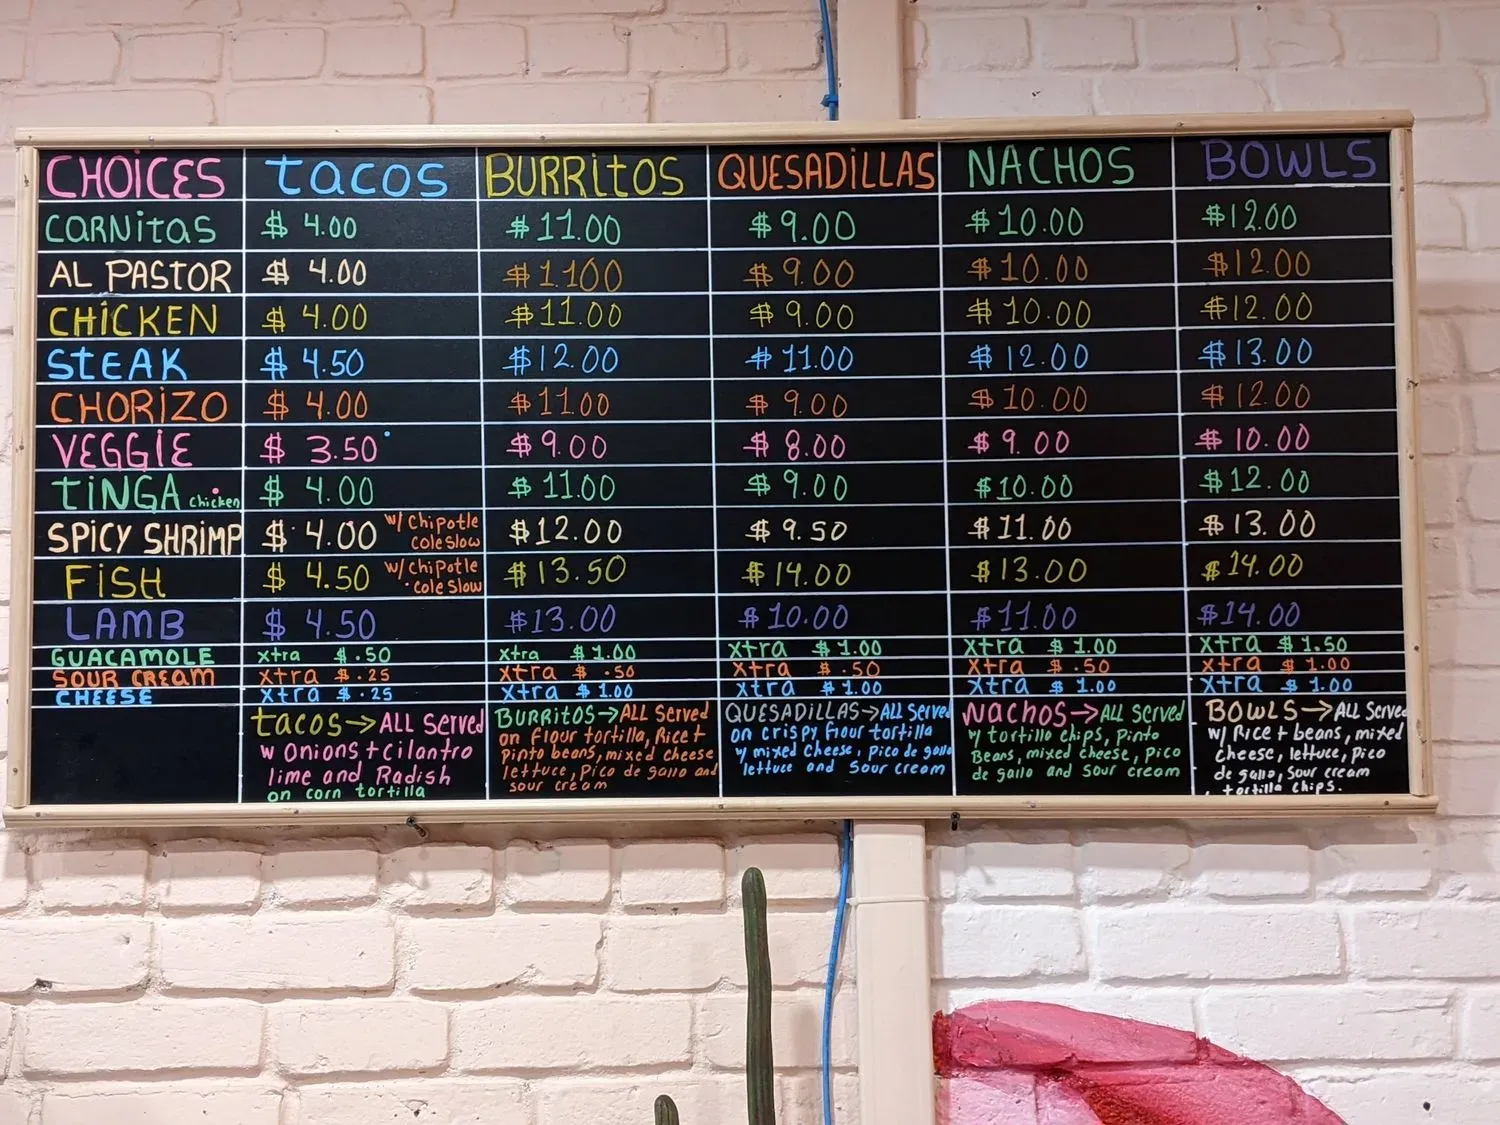 CHOICES TACOS BURRITOS QUESADILLAS NACHOS BOWLS
CARNITAS $ 4.00 $11.00 $9.00 $10.00 $12.00
AL PASTOR $ 4.00 $1.100 $9.00 $10.00 $12.00
CHICKEN $ 4.00 $11.00 $9.00 $10.00 $12.00
STEAK $ 4.50 $12.00 $11.00 $12.00 $13.00
CHORIZO $ 4.00 $11.00 $9.00 $10.00 $12.00
VEGGIE $ 3.50 $9.00 $8.00 $9.00 $10.00
TINGA chicken $ 4.00 $11.00 $9.00 $10.00 $12.00
SPICY SHRIMP $ 4.00 w/ Chipotle coleslow $12.00 $9.50 $11.00 $13.00
FISH $ 4.50 w/ Chipotle cole slow $13.50 $14.00 $13.00 $14.00
LAMB $ 4.50 $13.00 $10.00 $11.00 $14.00
GUACAMOLE xtra $ .50 xtra $1.00 xtra $1.00 xtra $1.00 xtra $1.50
SOUR CREAM xtra $ .25 xtra $ .50 xtra $ .50 xtra $ .50 xtra $1.00
CHEESE xtra $ .25 xtra $1.00 xtra $1.00 xtra $1.00 xtra $1.00
tacos → ALL Served
w onions + cilantro
lime and Radish
on corn tortilla
BURRITOS → ALL Served
on flour tortilla, Rice +
Pinto beans, mixed cheese
lettuce, Pico de gallo and
sour cream
QUESADILLAS → ALL Served
on crispy flour tortilla
w/ mixed Cheese, pico de gallo
lettuce and Sour cream
Nachos → ALL Served
w/ tortillo chips, Pinto
Beans, mixed cheese, Pico
de gallo and sour cream
BOWLS → ALL Served
w/ Rice + beans, mixed
Cheese, lettuce, Pico
de gallo, sour cream
, tortilla chips.